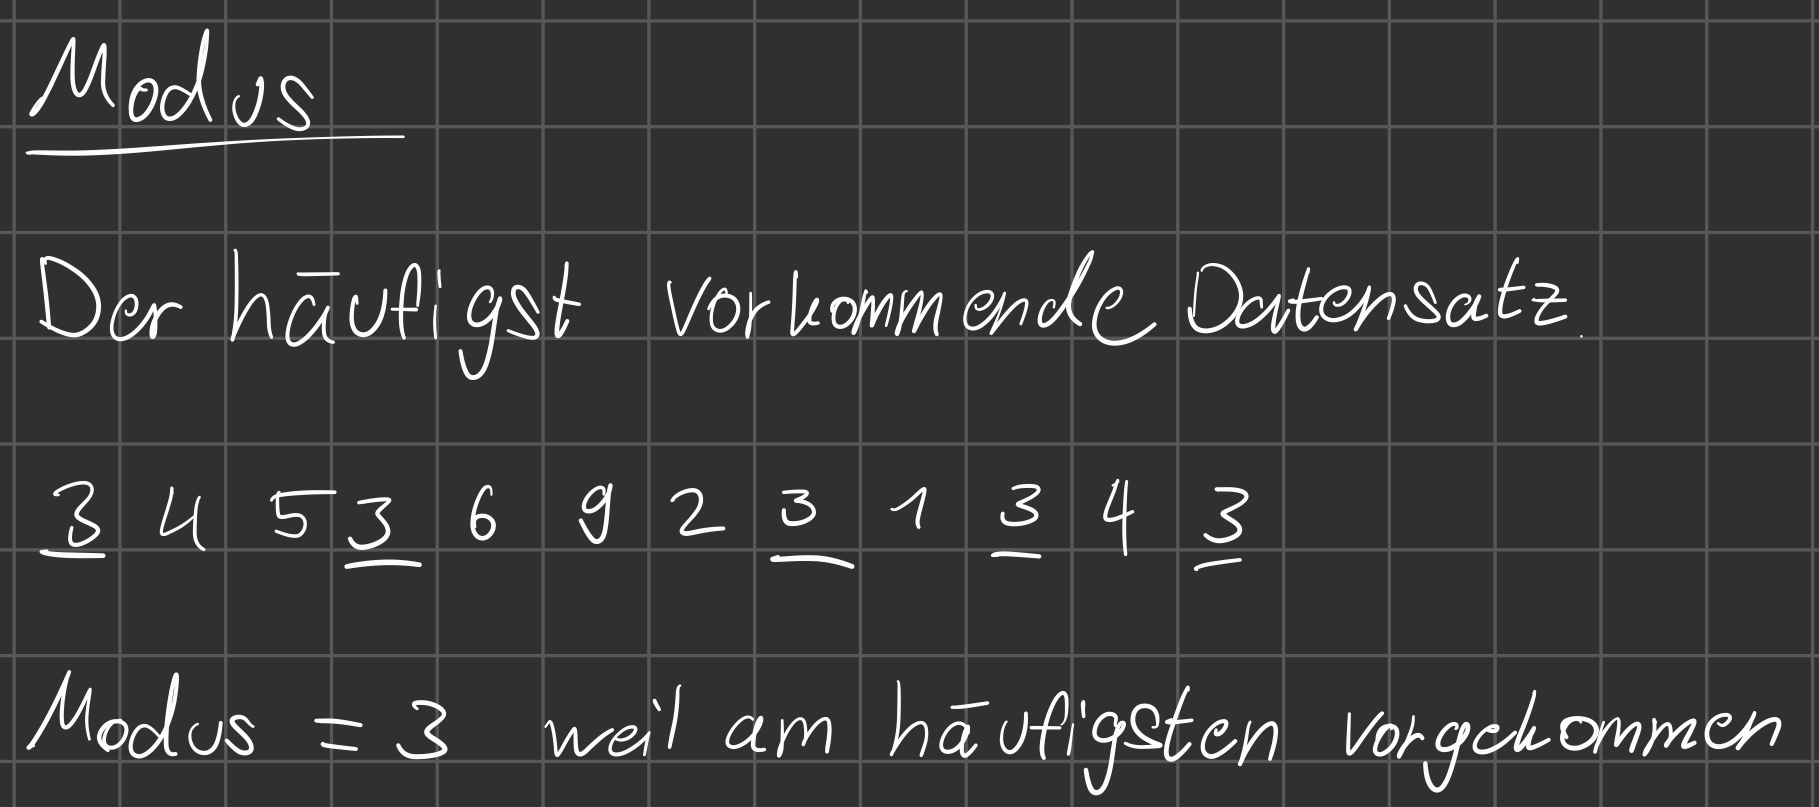 Modus
Der häufigst vorkommende Datensatz.
3 4 5 3 6 9 2 3 1 3 4 3
Modus = 3 weil am häufigsten vorgekommen